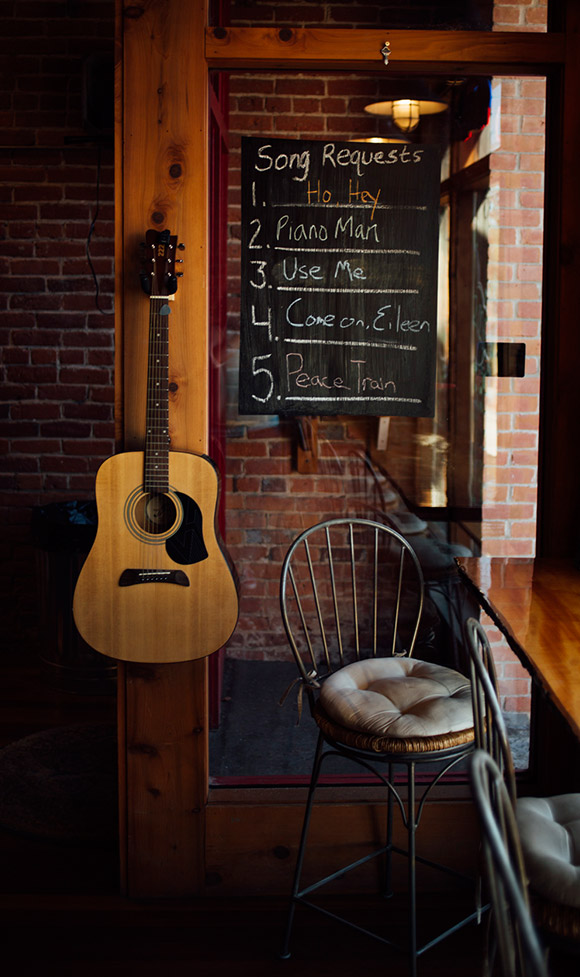 Song Requests
1. Ho, Hey
2. Piano Man
3. Use Me
4. Come on, Eileen
5. Peace Train